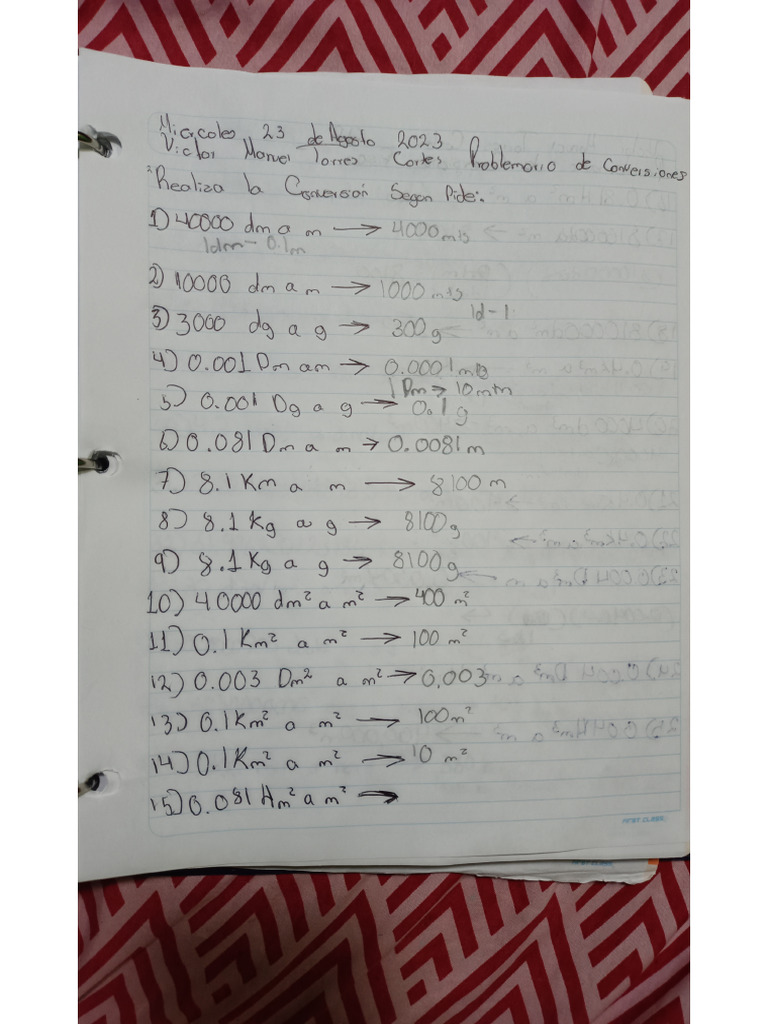 Miercoles 23 de Agosto 2023
Victor Manuel Torres Cortes Problemario de Conversiones
Realiza la Conversión Segon Pide:.
1) 40000 dm a m → 4000 mts
1dm - 0.1m
2) 10000 dm a m → 1000 mts
1d - 1
3) 3000 dg a g → 300g
4) 0.001 Dm a m → 0.0001 mts
1 Dm → 10 mtn
5) 0.001 Dg a g → 0.1 g
6) 0.081 Dm a m → 0.0081 m
7) 8.1 Km a m → 8100 m
8) 8.1 Kg a g → 8100g
9) 8.1 Kg a g → 8100g
10) 40000 dm² a m² → 400 m²
11) 0.1 Km² a m² → 100 m²
12) 0.003 Dm² a m² → 0,003
13) 0.1 Km² a m² → 100m²
14) 0.1 Km² a m² → 10 m²
15) 0.081 Hm² a m² →
FIRST CLASS